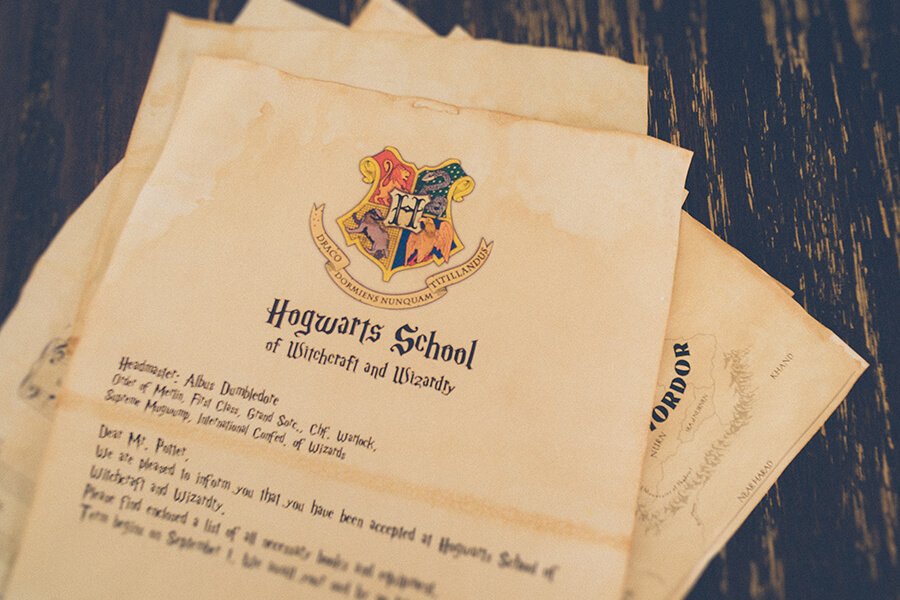 DRACO DORMIENS NUNQUAM TITILLANDUS
H
Hogwarts School
of Witchcraft and Wizardry
Headmaster: Albus Dumbledore
Order of Merlin, First Class, Grand Sorc., Chf. Warlock,
Supreme Mugwump, International Confed. of Wizards
Dear Mr. Potter,
We are pleased to inform you that you have been accepted at Hogwarts School of
Witchcraft and Wizardry.
Please find enclosed a list of all necessary books and equipment.
Term begins on September 1. We await
ORDOR
KHAND
NURN
NEAR HARAD